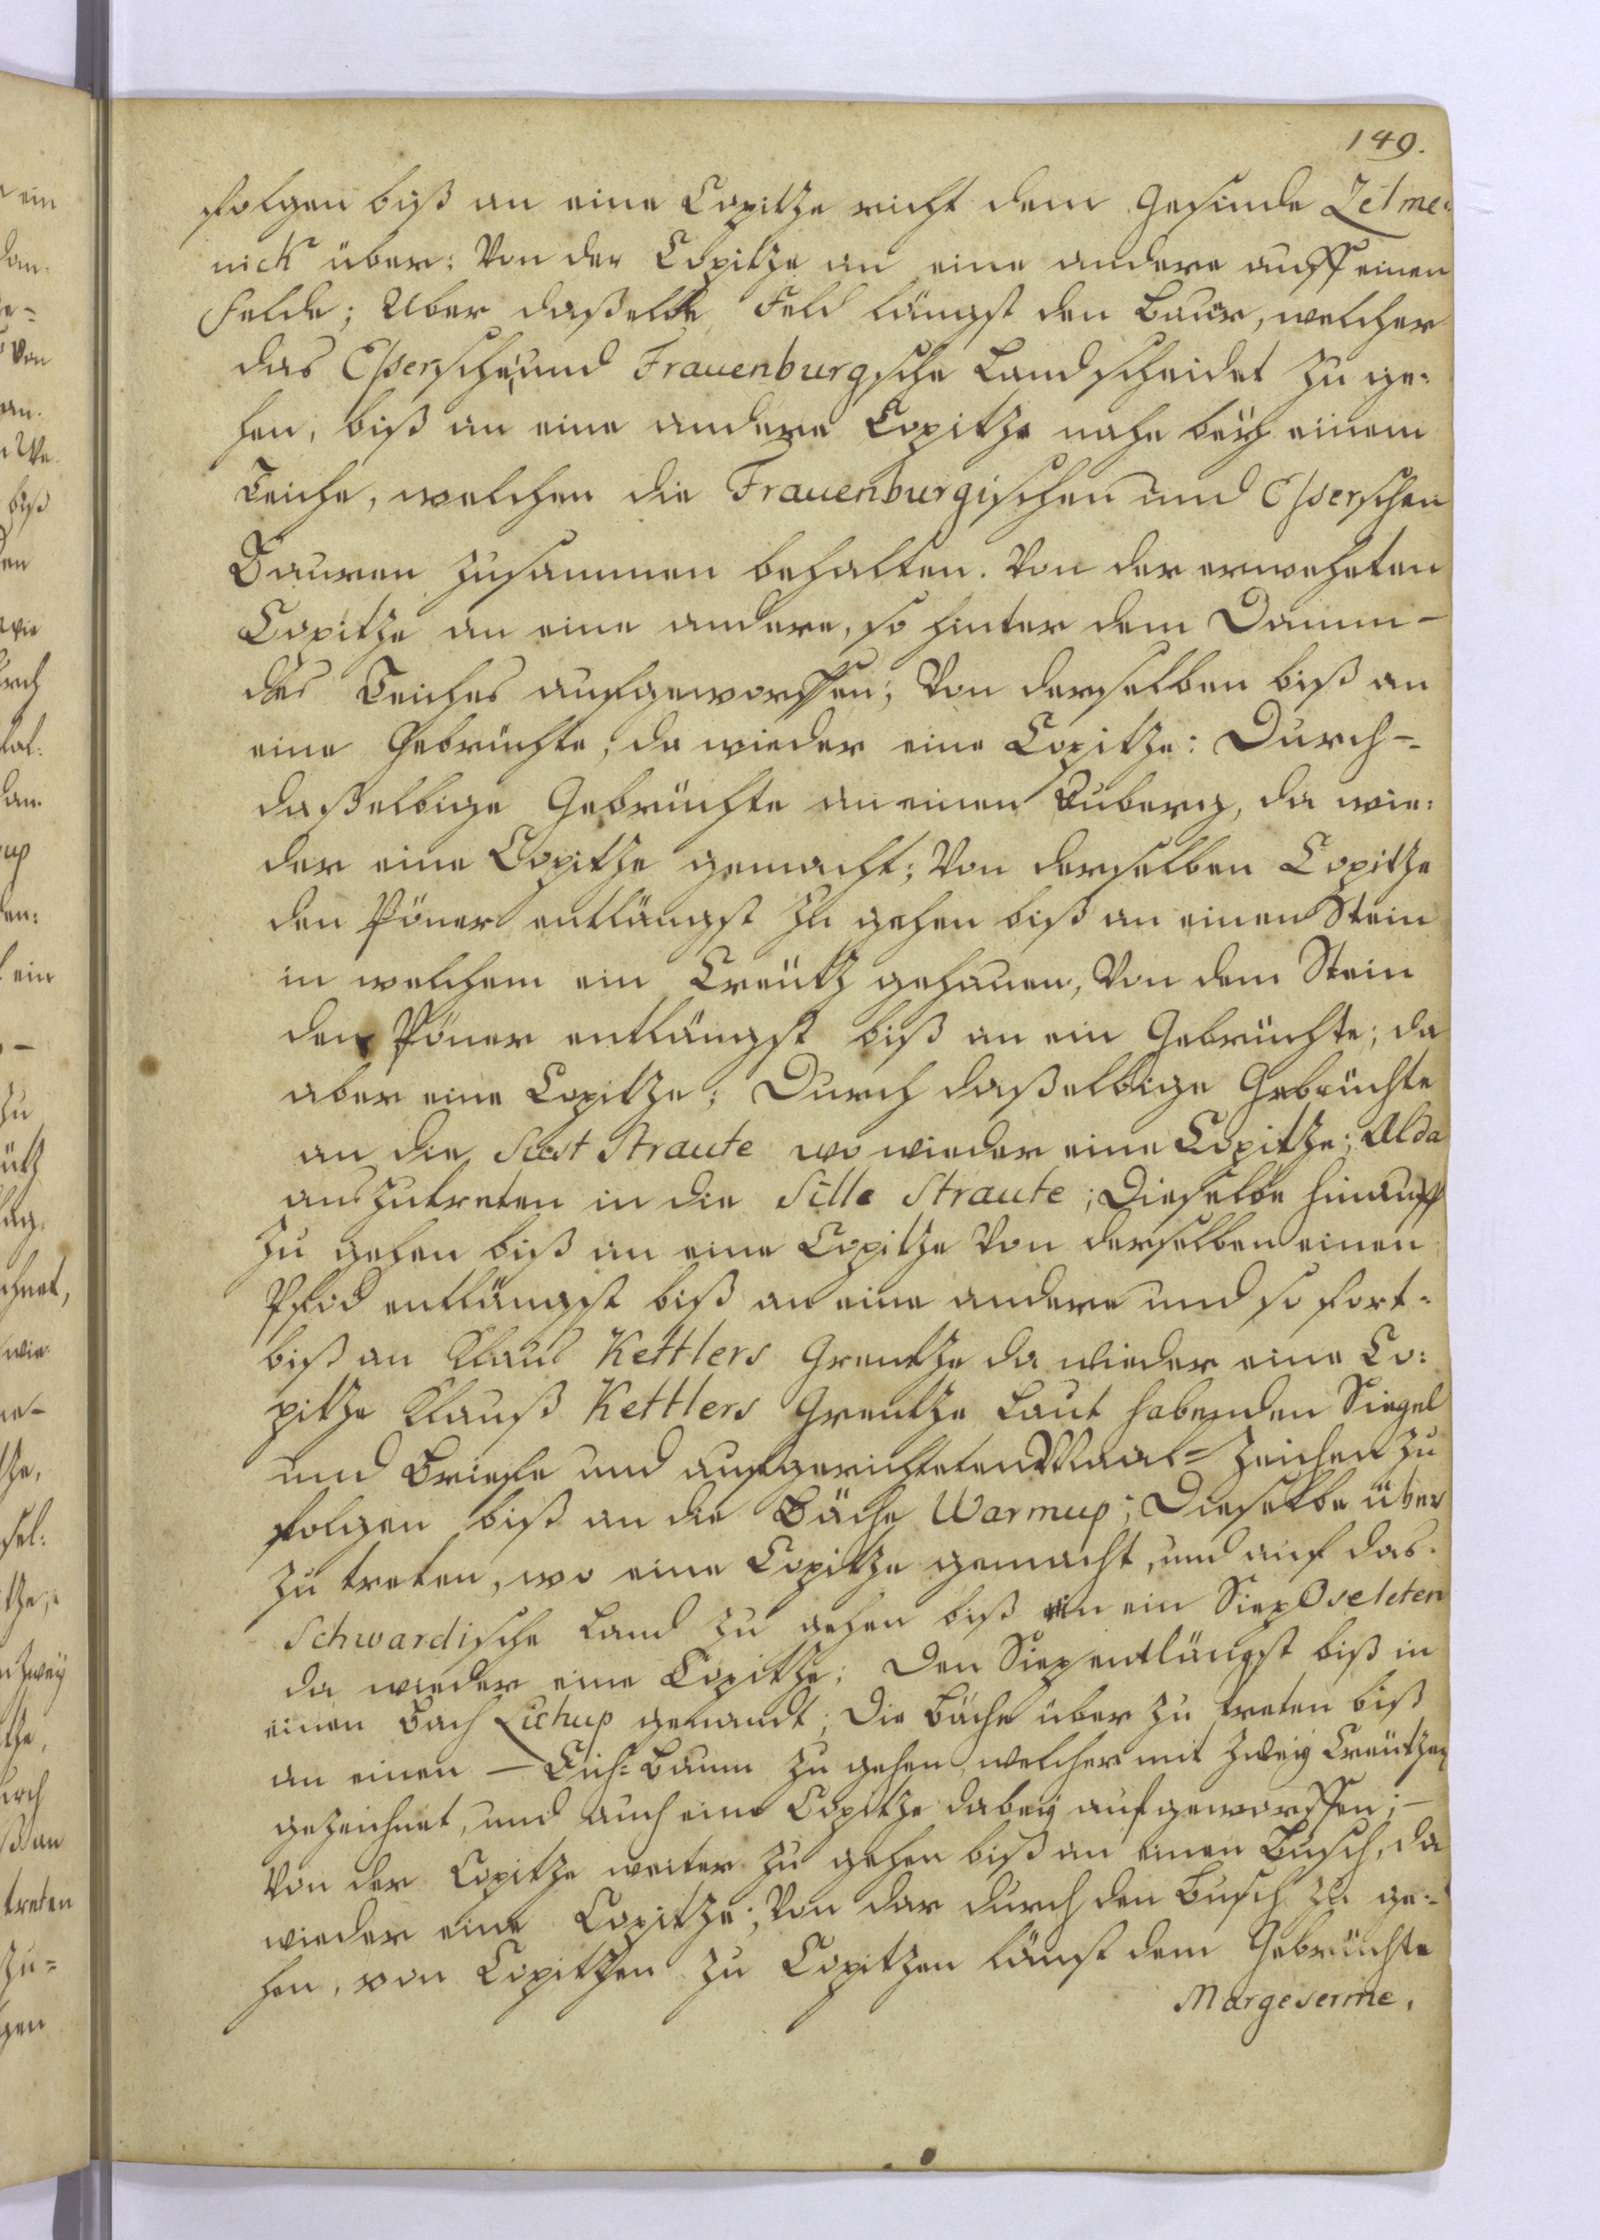 149.
folgen biß an eine Copitze richt dem Gesinde Zelme-
nick über: Von der Copitze an eine andere auff einen
Felde; Uber daßelbe Feld längst den Baur, welcher
das Eßersche und Frauenburgsche Land scheidet zu ge-
hen, biß an eine andere Copitze nahe beÿ einem
Teiche, welchen die Frauenburgischen und Eßerschen
Bauren zusammen behalten. Von der erwehnten
Copitze an eine andere, so hinter dem Damm-
des Teiches aufgeworffen; Von derselben biß an
eine Gebrüchte, da wieder eine Copitze: Durch-
daßelbige Gebrüchte an einen, da wie-
der eine Copitze gemacht; Von derselben Copitze
den Pöner entlängst zu gehen biß an einen Stein
in welchem ein Creütz gehauen, Von dem Stein
den Pöner entlängst biß an ein Gebrüchte; da
aber eine Copitze; Durch daßelbige Gebrüchte
an die Straute wo wieder eine Copitze; Alda
auszutreten in die Sille Straute; Dieselbe hinauff
zu gehen biß an eine Copitze Von derselben einen
Pfad entlängst biß an eine andere und so fort-
biß an Klaus Kettlers Grentze da wieder eine Co-
pitze Klauß Kettlers Grentze Laut habenden Siegel
und Briefe und aufgerichteten Maal-Zeichen zu
folgen biß an die Bäche Warmup; Dieselbe über
zu treten, wo eine Copitze gemacht, und auf das
Schwardische Land zu gehen biß an ein Siep Oseleten
da wieder eine Copitze; Den Siep entlängst biß in
einen Bach Lichup genandt; Die Bäche über zu treten biß
an einen – Eich-Baum zu gehen, welcher mit Zweÿ Creützen
gezeichnet, und auch eine Copitze dabeÿ aufgeworffen;-
Von der Copitze weiter zu gehen biß an einen Busch, da
wieder eine Copitze; Von dar durch den Busch zu ge-
hen, von Copitzen zu Copitzen länst dem Gebrüchte
Margeserme,